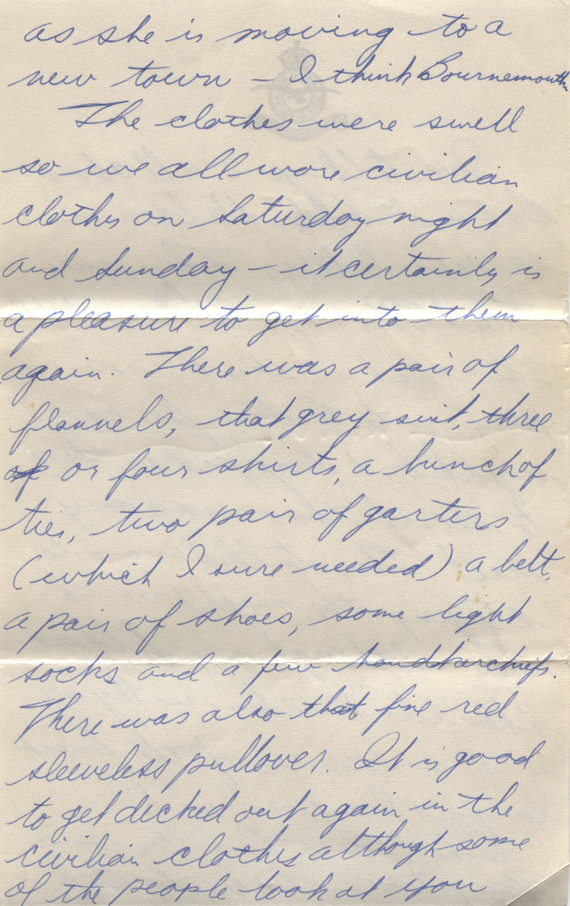 as she is moving to a
new town – I think Bournemouth
The clothes were swell
so we all wore civilian
clothes on Saturday night
and Sunday – it certainly is
a pleasure to get into them
again. There was a pair of
flannels, that grey suit, three
or four shirts, a bunch of
ties, two pair of garters
(which I sure needed) a belt,
a pair of shoes, some light
socks and a few handkerchiefs.
There was also that fine red
sleeveless pullover. It is good
to get decked out again in the
civilian clothes although some
of the people look at you